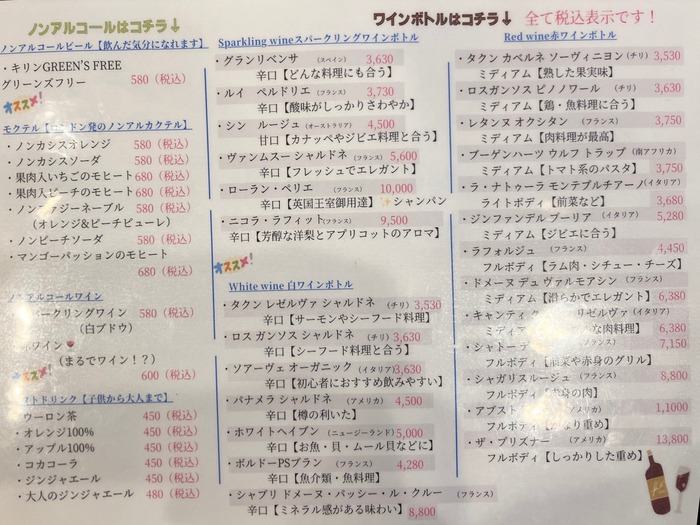 ノンアルコールはコチラ↓
ノンアルコールビール【飲んだ気分になれます】
・キリンGREEN'S FREE
グリーンズフリー 580（税込）
オススメ!
モクテル【ロンドン発のノンアルカクテル】
・ノンカシスオレンジ 580（税込）
・ノンカシスソーダ 580（税込）
・果肉入いちごのモヒート680（税込）
・果肉入ピーチのモヒート680（税込）
・ノンファジーネーブル 580（税込）
（オレンジ&ピーチピューレ）
・ノンピーチソーダ 580（税込）
・マンゴーパッションのモヒート
680（税込）
ノンアルコールワイン
パークリングワイン 580（税込）
（白ブドウ）
ワイン
（まるでワイン！？）
オススメ!
600（税込）
フトドリンク【子供から大人まで】
ウーロン茶 450（税込）
・オレンジ100% 450（税込）
・アップル100% 450（税込）
・コカコーラ 450（税込）
・ジンジャエール 450（税込）
・大人のジンジャエール 480（税込）
ワインボトルはコチラ↓ 全て税込表示です！
Sparkling wineスパークリングワインボトル
・グランリベンサ （スペイン） 3,630
辛口【どんな料理にも合う】
・ルイ ペルドリエ （フランス） 3,730
辛口【酸味がしっかりさわやか】
・シン ルージュ （オーストラリア） 4,500
甘口【カナッペやジビエ料理と合う】
・ヴァンムスー シャルドネ （フランス） 5,600
辛口【フレッシュでエレガント】
・ローラン・ペリエ （フランス） 10,000
辛口【英国王室御用達】✨シャンパン
・ニコラ・ラフィット（フランス） 9,500
辛口【芳醇な洋梨とアプリコットのアロマ】
オススメ!
White wine 白ワインボトル
・タクン レゼルヴァ シャルドネ （チリ） 3,530
辛口【サーモンやシーフード料理】
・ロス ガンソス シャルドネ （チリ）3,630
辛口【シーフード料理と合う】
・ソアーヴェ オーガニック （イタリア）3,630
辛口【初心者におすすめ飲みやすい】
・パナメラ シャルドネ （アメリカ） 4,500
辛口【樽の利いた】
・ホワイトヘイブン （ニュージーランド）5,000
辛口【お魚・貝・ムール貝などに】
・ボルドーPSブラン （フランス） 4,280
辛口【魚介類・魚料理】
・シャブリ ドメーヌ・バッシー・ル・クルー （フランス）
辛口【ミネラル感がある味わい】 8,800
Red wine赤ワインボトル
・タクン カベルネ ソーヴィニヨン（チリ） 3,530
ミディアム【熟した果実味】
・ロスガンソス ピノノワール （チリ） 3,630
ミディアム【鶏・魚料理に合う】
・レタンヌ オクシタン （フランス） 3,750
ミディアム【肉料理が最高】
・ブーゲンハーツ ウルフ トラップ （南アフリカ）
ミディアム【トマト系のパスタ】 3,750
・ラ・ナトゥーラ モンテプルチアーノ（イタリア）
ライトボディ【前菜など】 3,680
・ジンファンデル プーリア （イタリア） 5,280
ミディアム【ジビエに合う】
・ラフォルジュ （フランス） 4,450
フルボディ【ラム肉・シチュー・チーズ】
・ドメーヌ デュ ヴァルモアシン （フランス）
ミディアム【滑らかでエレガント】 6,380
・キャンティ リゼルヴァ（イタリア）
ミディアム な肉料理】 6,380
・シャトー （フランス） 7,150
フルボディ【前菜や赤身のグリル】
・シャガリスルージュ （フランス） 8,800
フルボディ【赤身の肉】
・アプスト （アメリカ） 1,1000
フルボディ なり重め】
・ザ・プリズナー （アメリカ） 13,800
フルボディ【しっかりした重め】